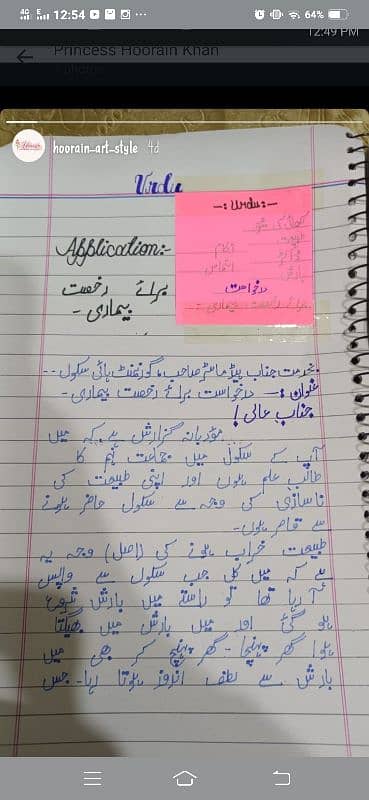 12:54
64%
12:49 PM
Princess Hoorain Khan
hoorain_art_style 4d
Urdu
-: Urdu:-
Application:-
درخواست
برائے رخصت
بیماری -
بخدمت جناب ہیڈ ماسٹر صاحب، گورنمنٹ ہائی سکول --
عنوان :- درخواست برائے رخصت بیماری -
جناب عالی!
مؤدبانہ گزارش ہے کہ میں
آپ کے سکول میں جماعت نہم کا
طالب علم ہوں اور اپنی طبیعت کی
ناسازی کی وجہ سے سکول حاضر ہونے
سے قاصر ہوں-
طبیعت خراب ہونے کی (اصل) وجہ یہ
ہے کہ میں کل جب سکول سے واپس
آ رہا تھا تو راستے میں بارش شروع
ہو گئی اور میں بارش میں بھیگتا
ہوا گھر پہنچا - گھر پہنچ کر بھی میں
بارش سے لطف اندوز ہوتا رہا- جس